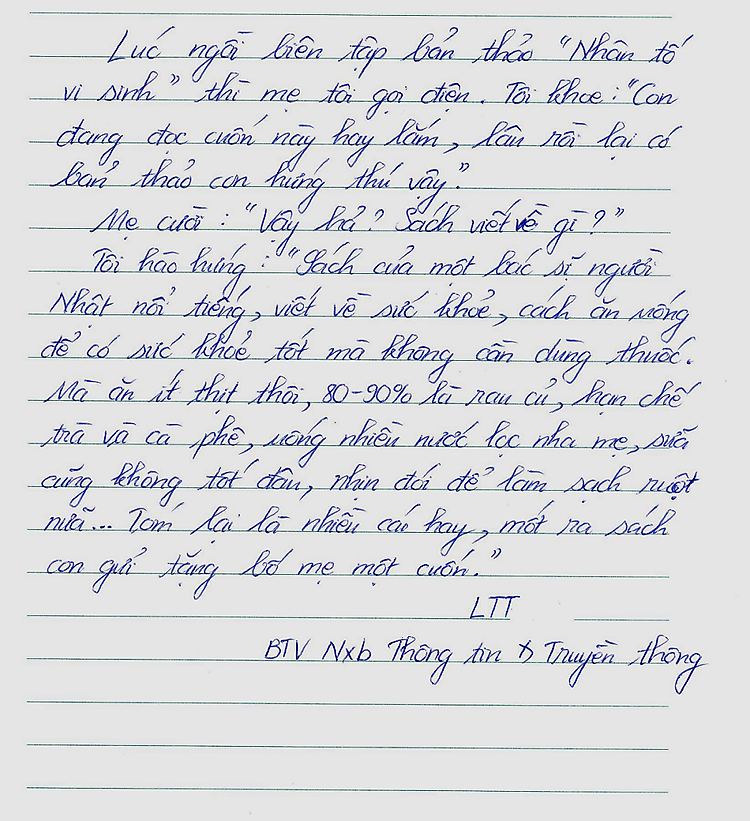 Lúc ngồi biên tập bản thảo "Nhân tố
vi sinh" thì mẹ tôi gọi điện. Tôi khoe: "Con
đang đọc cuốn này hay lắm, lâu rồi lại có
bản thảo con hứng thú vậy".
Mẹ cười: "Vậy hả? Sách viết về gì?"
Tôi hào hứng: "Sách của một bác sĩ người
Nhật nổi tiếng, viết về sức khoẻ, cách ăn uống
để có sức khoẻ tốt mà không cần dùng thuốc.
Mà ăn ít thịt thôi, 80-90% là rau củ, hạn chế
trà và cà phê, uống nhiều nước lọc nha mẹ, sữa
cũng không tốt đâu, nhịn đói để làm sạch ruột
nữa... Tóm lại là nhiều cái hay, mốt ra sách
con gửi tặng bố mẹ một cuốn."
LTT
BTV Nxb Thông tin & Truyền thông